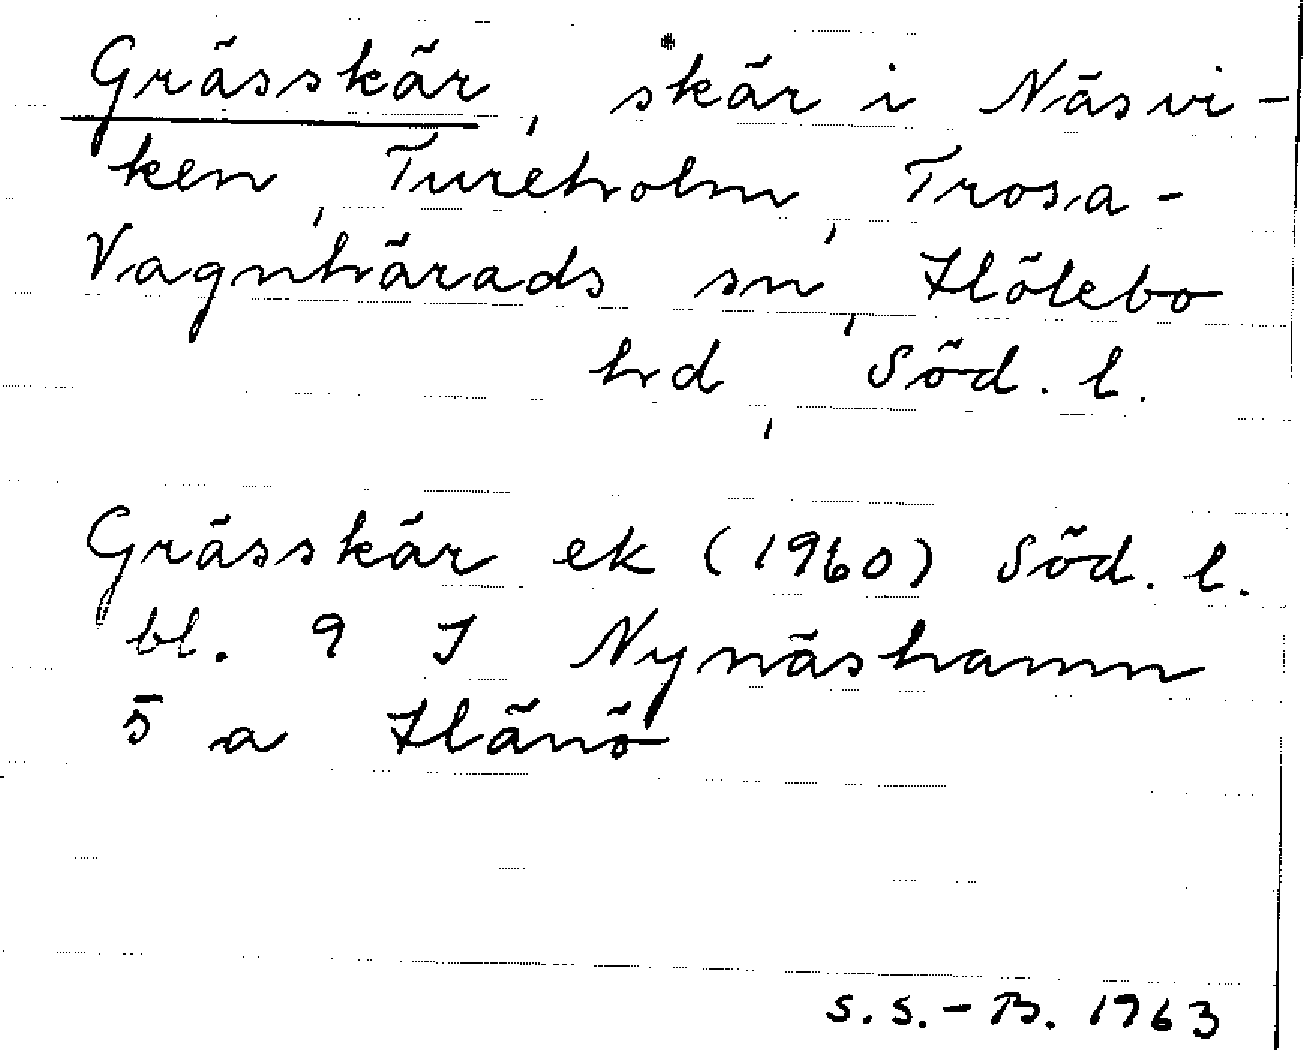 Grässkär, skär i Näsvi-
ken, Tureholm, Trosa-
Vagnhärads sn, Hölebo
hrd, Söd. l.
Grässkär ek (1960) Söd. l.
bl. 9 I Nynäshamn
5 a Hånö
S. S. - B. 1963